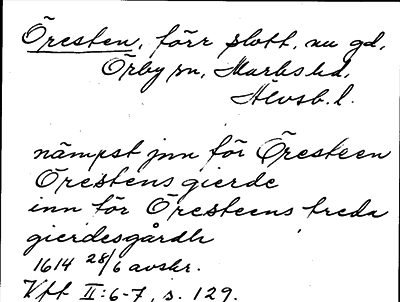 Öresten, förr slott, nu gd,
Örby sn, Marks hd,
Älvsb. l.
nämpst jnn för Öresteen
Örestens gierde
inn för Öresteens freda
gierdesgårdh
1614 28/6 avskr.
Vff II:6-7, s. 129.